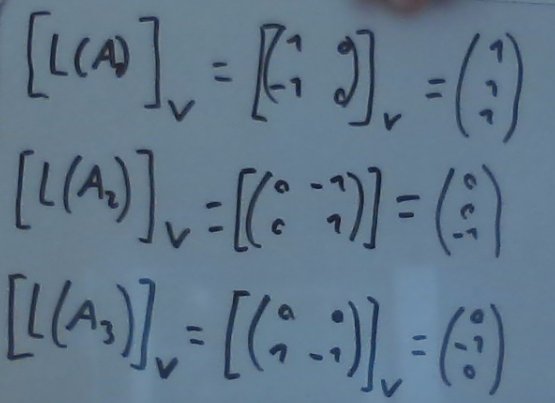 [L(A₁)]_V = [(1 0 / -1 0)]_V = (1 / 1 / 1)
[L(A₂)]_V = [(0 -1 / 0 1)] = (0 / 0 / -1)
[L(A₃)]_V = [(0 0 / 1 -1)]_V = (0 / -1 / 0)